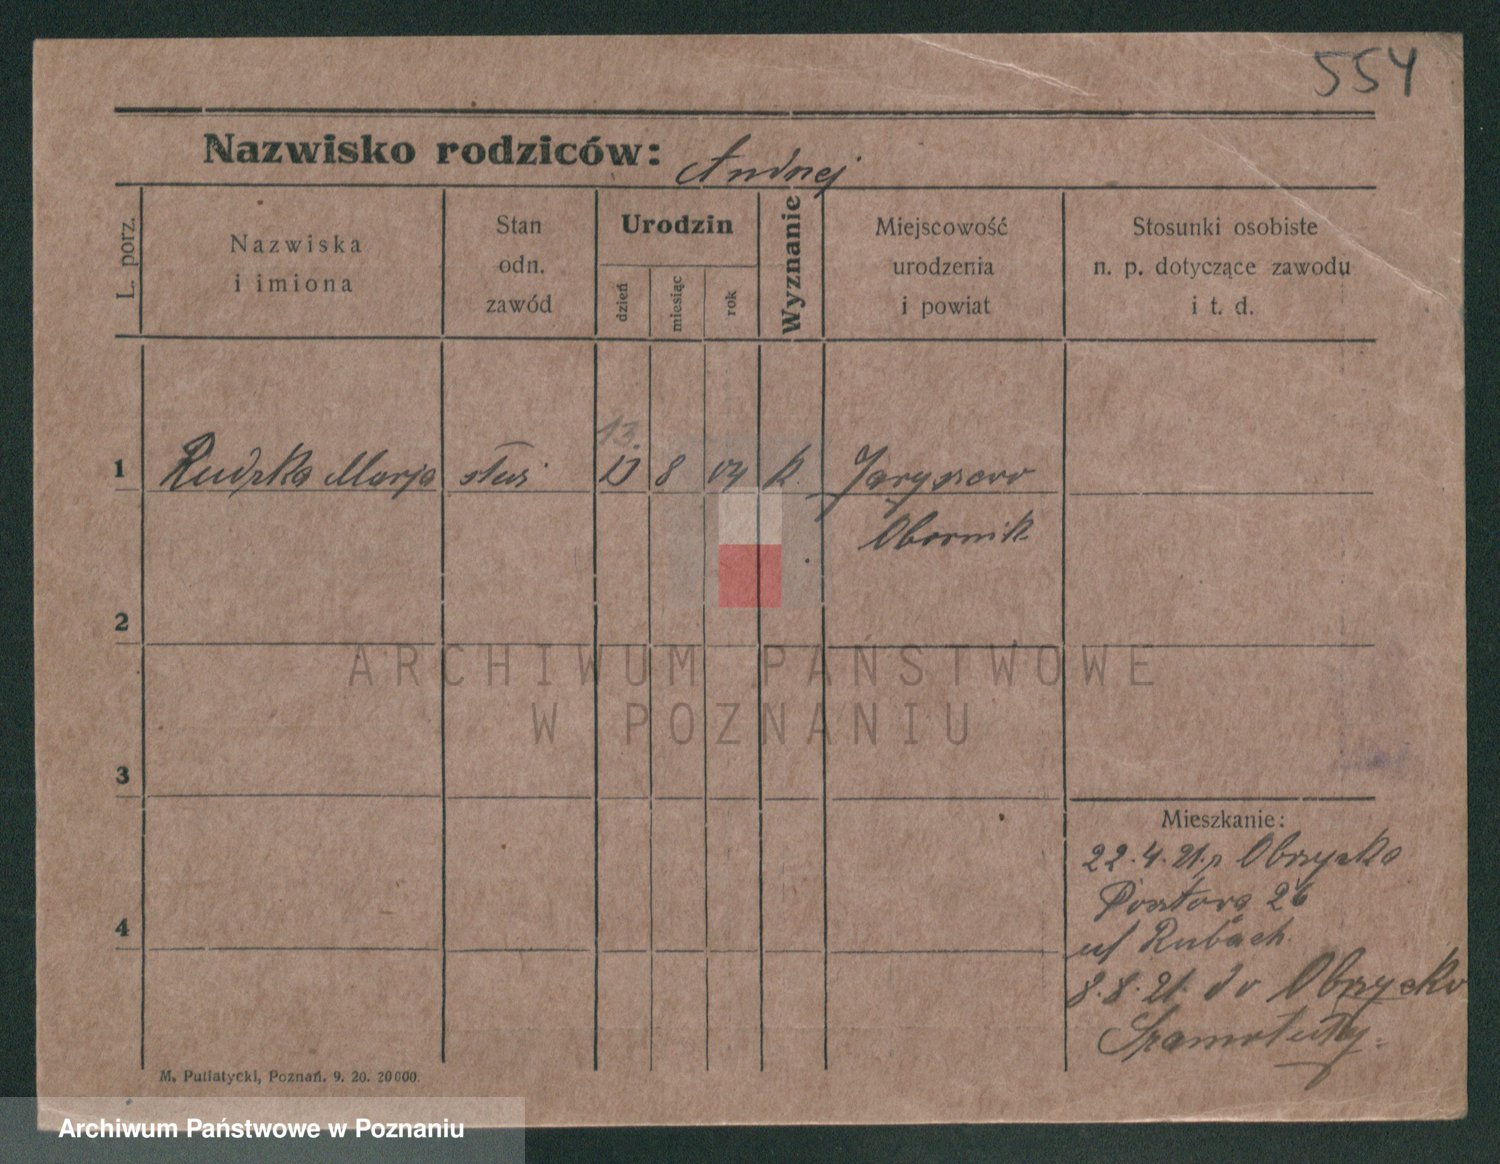 554
Nazwisko rodziców: Andrzej
L. porz.
Nazwiska
i imiona
Stan
odn.
zawód
Urodzin
dzień
miesiąc
rok
Wyznanie
Miejscowość
urodzenia
i powiat
Stosunki osobiste
n. p. dotyczące zawodu
i t. d.
13.
1 Rudzka Marja służ 13 8 04 k. Jaryszewo
Obornik
2
3
4
Mieszkanie:
22.4.21. z Obrzycka
Pocztowa 26
u/ Rubach.
8.8.21. do Obrzycko
Szamotuły.
M. Putiatycki, Poznań. 9. 20. 20000.
ARCHIWUM PAŃSTWOWE
W POZNANIU
Archiwum Państwowe w Poznaniu